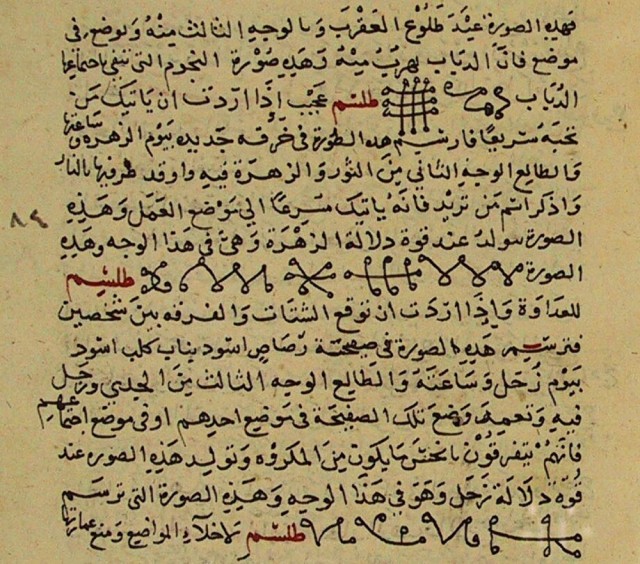 فهذه الصورة عند طلوع العقرب وبالوجه الثالث منه ويوضع في
موضع فان الدباب يهرب منه وهذه صورة النجوم التي تنفي باجتماعها
الدباب طلسم عجيب إذا اردت ان ياتيك من
تحبه سريعا فارسم هذه الصورة في خرقه جديده بيوم الزهره وساعتها
والطالع الوجه الثاني من الثور والزهرة فيه واوقد طرفيها بالنار
واذكر اسم من تريد فانه ياتيك سرعا الي موضع العمل وهذه
الصورة تتولد عند قوة دلالة الزهرة وهي في هذا الوجه وهذه
الصورة طلسم
للعداوة وإذا اردت ان توقع الشتات والفرقه بين شخصين
فترسم هذه الصورة في صفيحة رصاص اسود بناب كلب اسود
بيوم زحل وساعته والطالع الوجه الثالث من الجدي وزحل
فيه وتضع تلك الصفيحة في موضع احدهم او في موضع اجتماعهم
فانهم يتفرقون بانحس ما يكون من المكروه وتولد هذه الصوره عند
قوة دلالة زحل وهو في هذا الوجه وهذه الصورة التي ترسم
طلسم لاخلاء المواضع ومنع عمارتها
٨٤